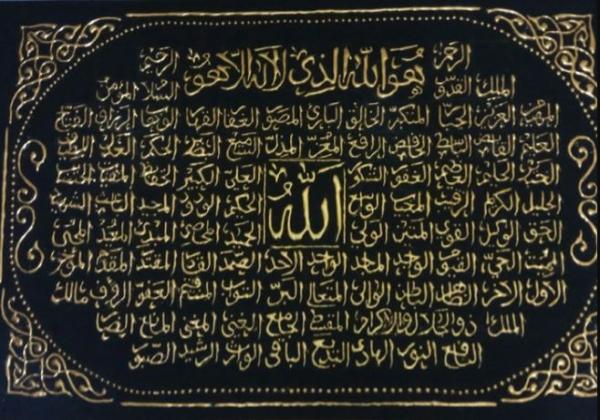 هو الله الذي لا اله الا هو الرحمن الرحيم
الملك القدوس السلام المؤمن
المهيمن العزيز الجبار المتكبر الخالق البارئ المصور الغفار القهار الوهاب الرزاق الفتاح
العليم القابض الباسط الخافض الرافع المعز المذل السميع البصير الحكم العدل اللطيف
الخبير الحليم العظيم الغفور الشكور العلي الكبير الحفيظ المقيت الحسيب
الجليل الكريم الرقيب المجيب الواسع الله الحكيم الودود المجيد الباعث الشهيد
الحق الوكيل القوي المتين الولي الحميد المحصي المبدئ المعيد المحيي
المميت الحي القيوم الواجد الماجد الواحد الاحد الصمد القادر المقتدر المقدم المؤخر
الاول الاخر الظاهر الباطن الوالي المتعال البر التواب المنتقم العفو الرؤف مالك
الملك ذو الجلال والاكرام المقسط الجامع الغني المغني المانع الضار
النافع النور الهادي البديع الباقي الوارث الرشيد الصبور